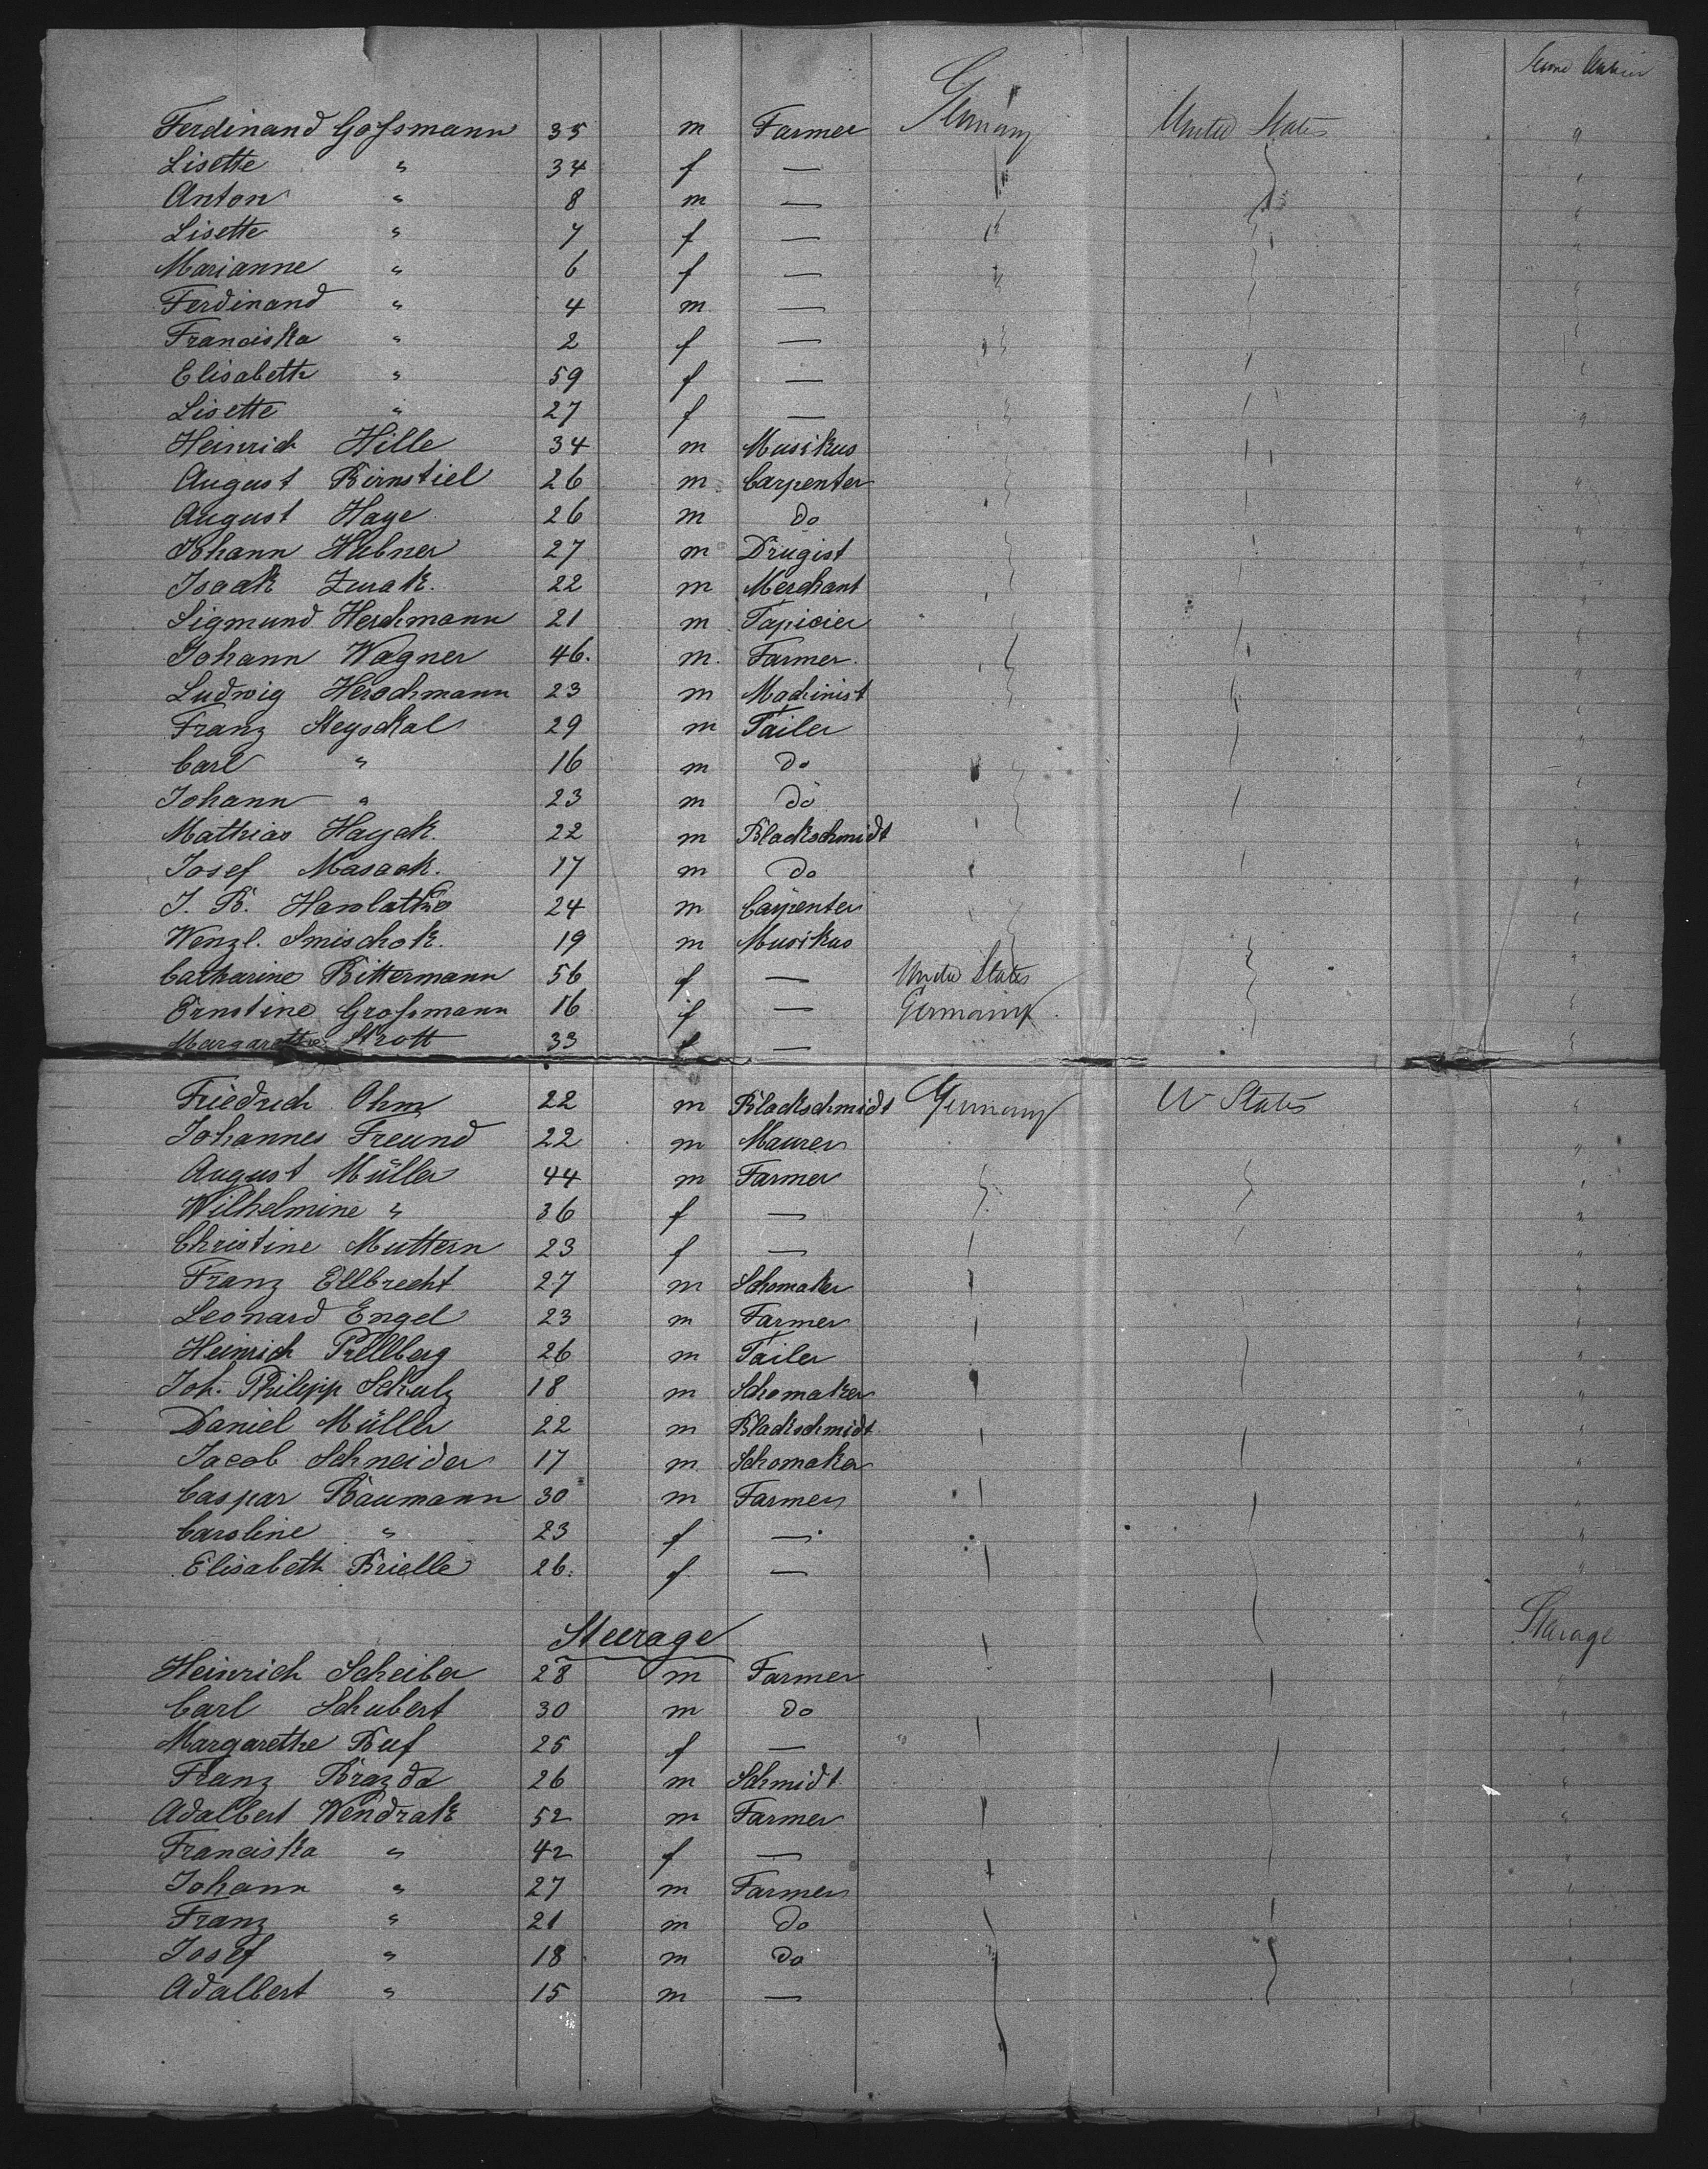 Second Cabin
Ferdinand Gossmann 35 m Farmer Germany United States "
Lisette " 34 f — "
Anton " 8 m — "
Lisette " 7 f — "
Marianne " 6 f — "
Ferdinand " 4 m — "
Franciska " 2 f — "
Elisabeth " 59 f — "
Lisette " 27 f — "
Heinrich Hille 34 m Musikus
August Birnstiel 26 m Carpenter "
August Haye 26 m do "
Johann Hübner 27 m Drugist "
Isaak Zurak. 22 m Merchant "
Sigmund Herchmann 21 m Tapicier "
Johann Wagner 46. m. Farmer. "
Ludwig Herschmann 23 m Machinist "
Franz Steyskal 29 m Tailer "
Carl " 16 m do "
Johann " 23 m do "
Mathias Hayek. 22 m Blackschmidt "
Josef Masaek. 17 m do "
J. B. 24 m Carpenter "
Wenzl. Smischek. 19 m Musikus "
Catharine Bittermann 56 f — United States "
Ernstine Grossmann 16 f — Germany "
Margarethe Strott 33 f — "
Friedrich Ohm 22 m Blackschmidt Germany U States "
Johannes Freund 22 m Maurer "
August Müller 44 m Farmer "
Wilhelmine " 36 f — "
Christine Muttern 23 f — "
Franz Ellbrecht 27 m Schomaker "
Leonard Engel 23 m Farmer "
Heinrich Prellberg 26 m Tailer "
Joh. Philipp Schulz 18 m Schomaker "
Daniel Müller 22 m Blackschmidt "
Jacob Schneider 17 m Schomaker "
Caspar Baumann 30 m Farmer "
Caroline " 23 f — "
Elisabeth Brielle 26. f — "
Steerage Steerage
Heinrich Scheiber 28 m Farmer "
Carl Schubert 30 m do "
Margarethe Buf 25 f — "
Franz Brazda 26 m Schmidt "
Adalbert Wendrak 52 m Farmer "
Franciska " 42 f — "
Johann " 27 m Farmer "
Franz " 21 m do "
Josef " 18 m do "
Adalbert " 15 m — "